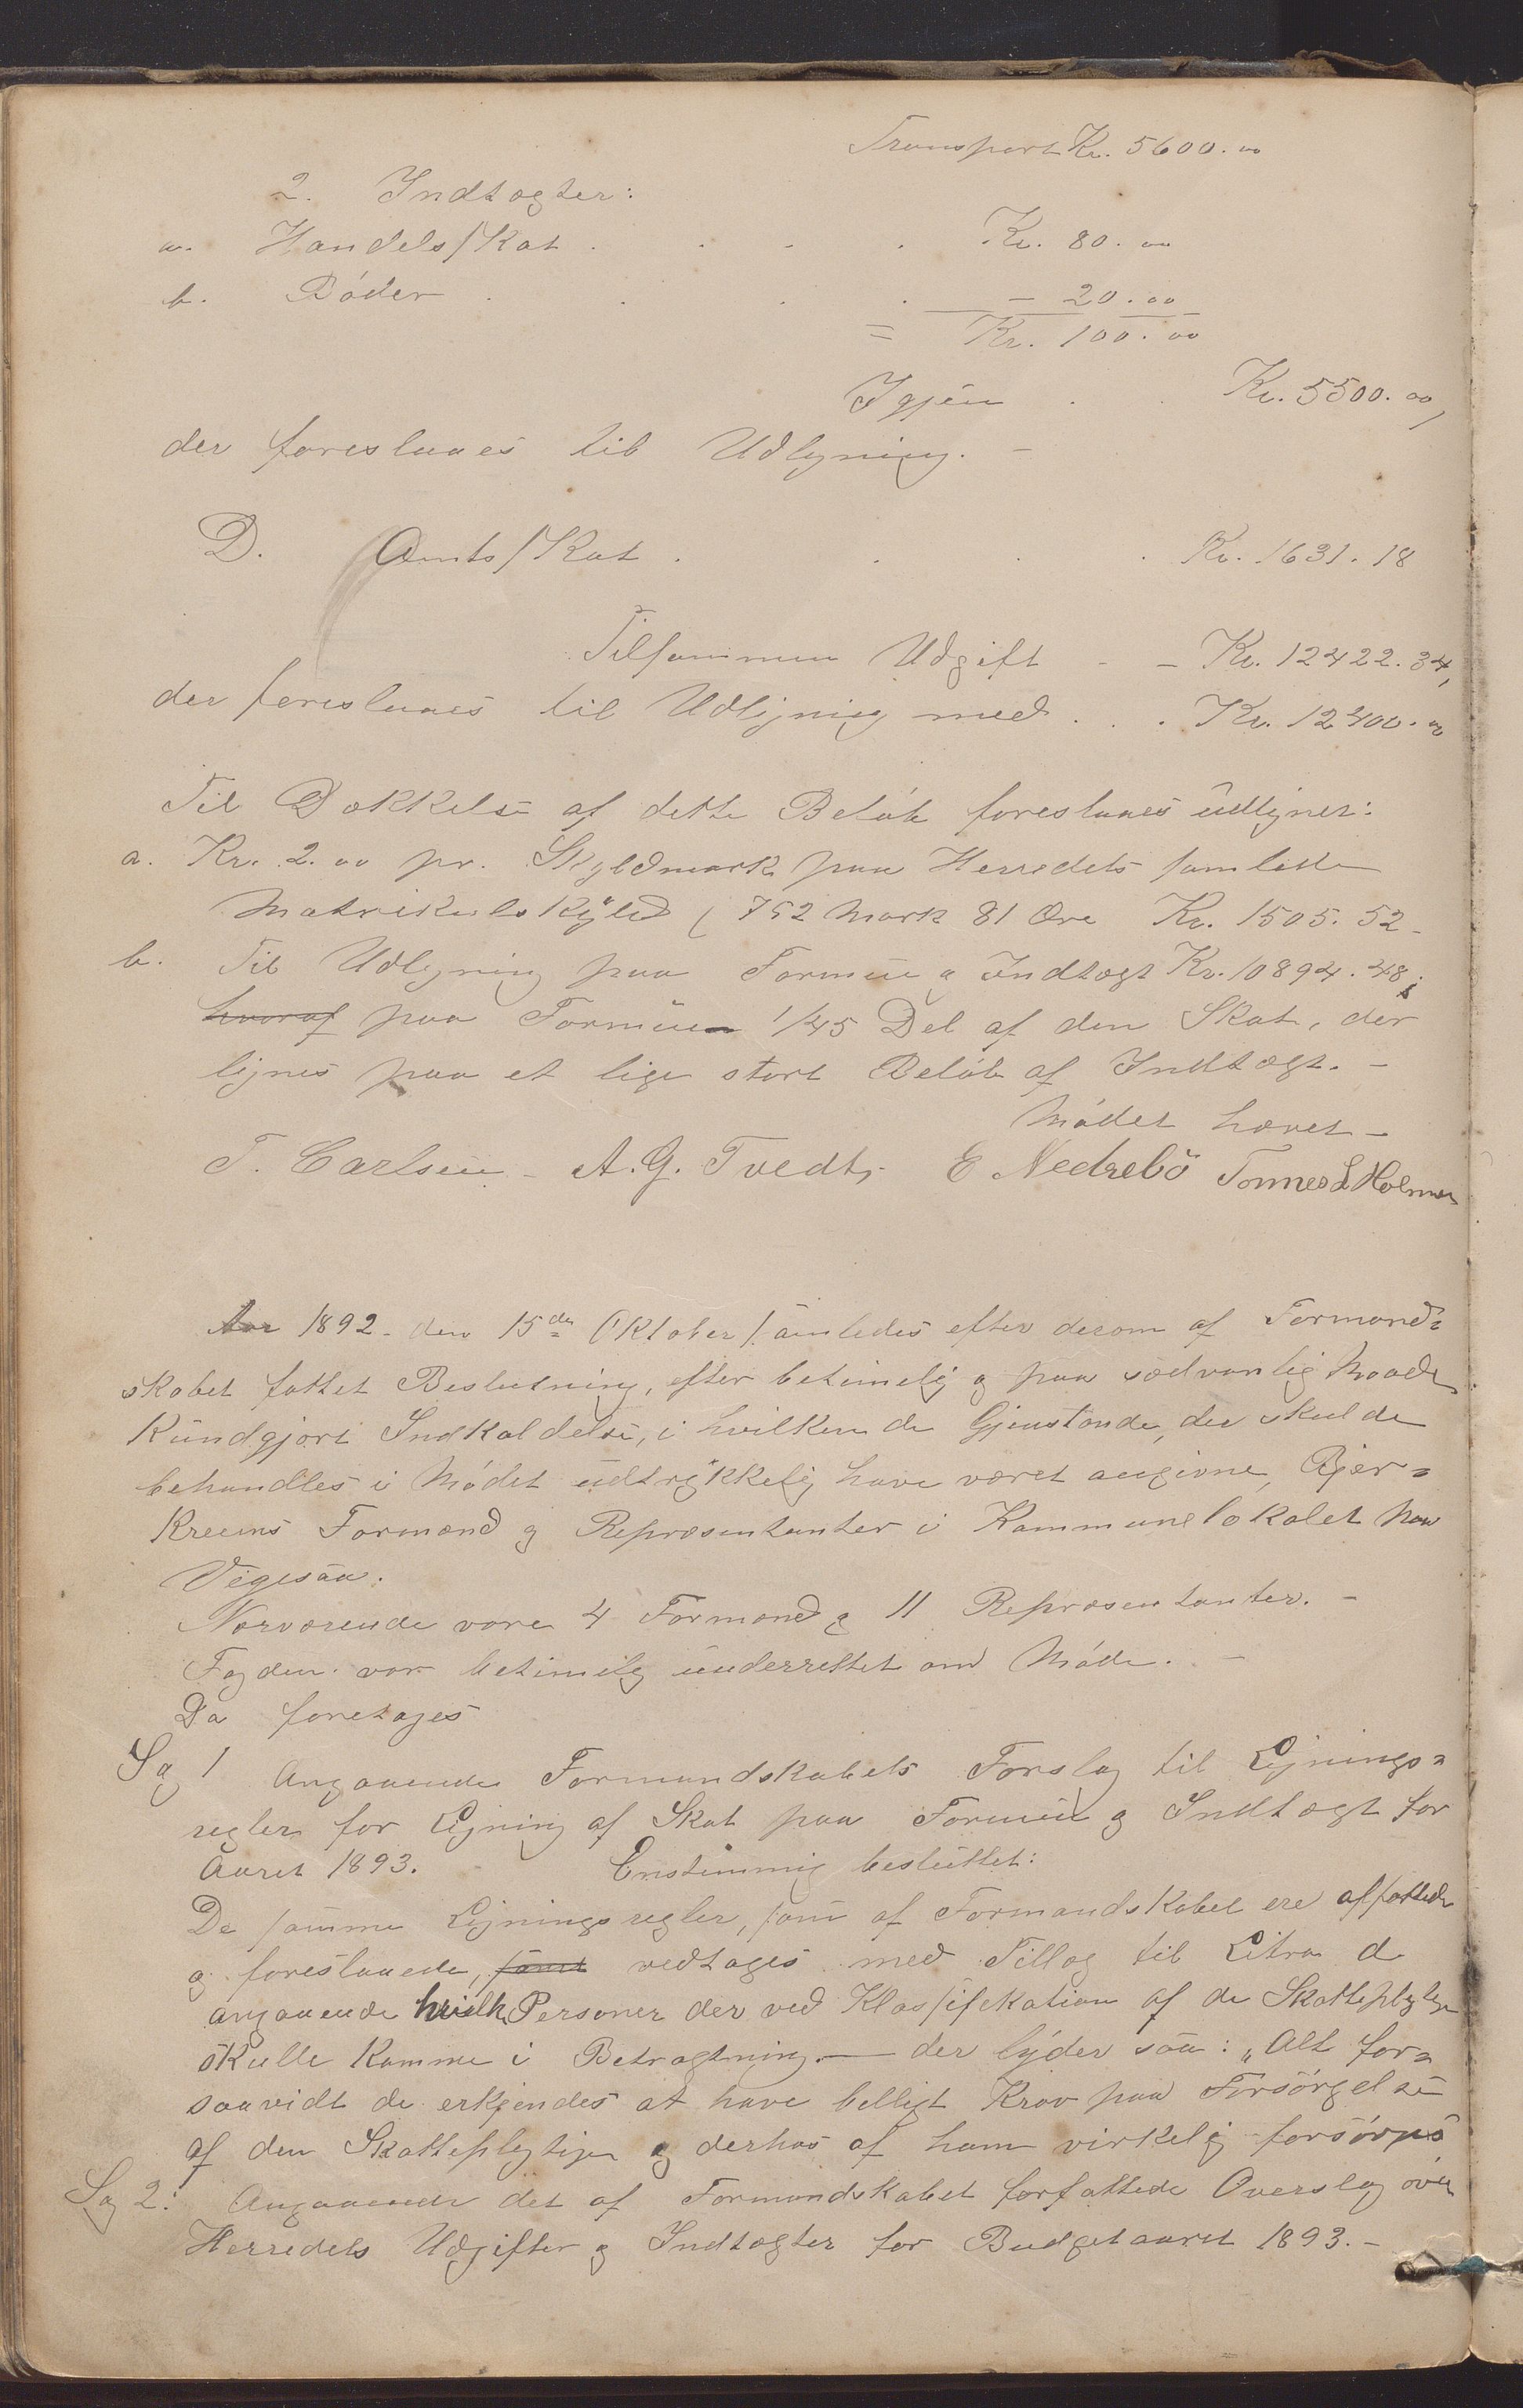 Transport Kr. 5600.00
2. Indtægter:
a. Handelsskat . . . . Kr. 80.00
b. Bøder . . . . - 20.00
= Kr. 100.00
Igjen . . Kr. 5500.00,
der foreslaaes til Udligning. -
D. Amtsskat . . . . Kr. 1631.18
Tilsammen Udgift - - Kr. 12422.34,
der foreslaaes til Udligning med . . . Kr. 12400.00
Til Dækkelse af dette Beløb foreslaaes udlignet:
a. Kr. 2.00 pr. Skyldmark paa Herredets samlede
Matrikulskyld ( 752 Mark 81 Øre Kr. 1505.52 -
b. Til Udligning paa Formue og Indtægt Kr. 10894.48;
hvoraf paa Formuen 1/45 Del af den Skat, der
lignes paa et lige stort Beløb af Indtægt. -
Mødet hævet -
T. Carlsen - A. G. Tvedt, E Nedrebö Tonnes L Holmen
Aar 1892 - den 15de Oktober samledes efter derom af Formand=
skabet fattet Beslutning, efter betimelig og paa sædvanlig Maade
kundgjort Indkaldelse, i hvilken de Gjenstande, der skulde
behandles i Mødet udtrykkelig have været angivne, Bjer=
kreims Formænd og Repræsentanter i Kommunelokalet paa
Vigesaa.
Nærværende vare 4 Formænd og 11 Repræsentanter. -
Fogden var betimelig underrettet om Møde. -
Da foretages
Sag 1 Angaaende Formandskabets Forslag til Lignings=
regler for Ligning af Skat paa Formue og Indtægt for
Aaret 1893. Enstemmig besluttet:
De samme Ligningsregler, som af Formandskabet ere affattede
og foreslaaede, samt vedtages med Tillæg til Litra d
angaaende hvilke Personer der ved Klassifikation af de Skattepligtige
skulle komme i Betragtning. — der lyder saa: „Alt for=
saavidt de erkjendes at have billigt Krav paa Forsørgelse
af den Skattepligtige og derhos af ham virkelig forsørges
Sag 2: Angaaende det af Formandskabet forfattede Overslag over
Herredets Udgifter og Indtægter for Budgetaaret 1893. -